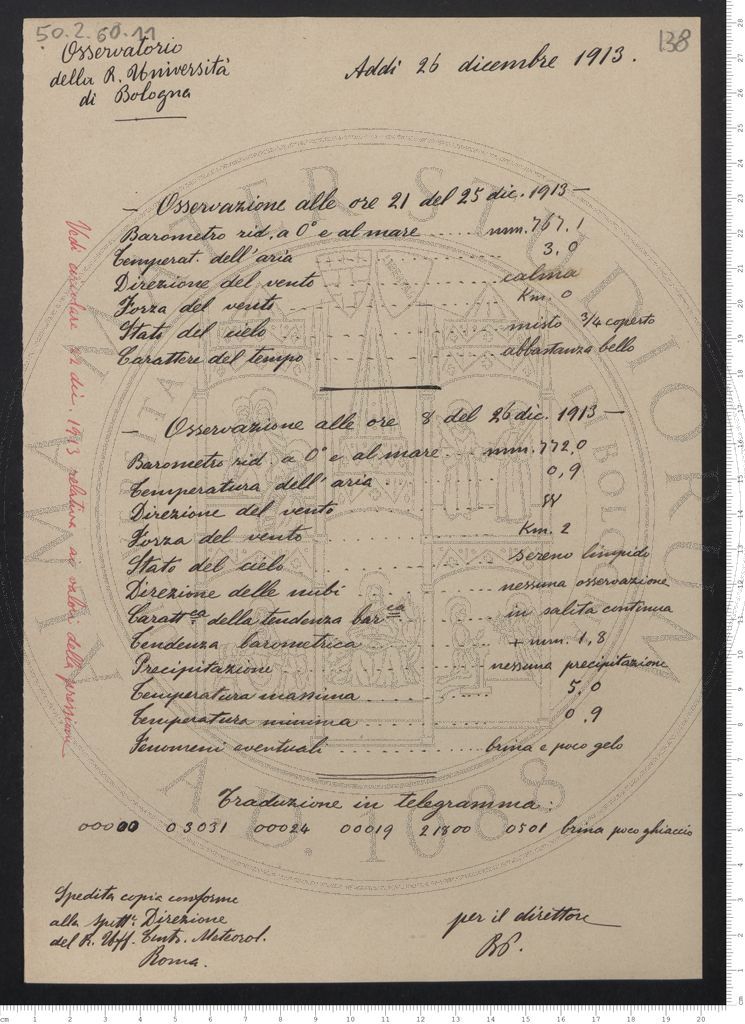 50.2.60.11
138
Osservatorio
della R. Università
di Bologna
Addì 26 dicembre 1913.
— Osservazione alle ore 21 del 25 dic. 1913 —
Barometro rid. a 0° e al mare ........ mm. 767,1
Temperat. dell'aria ........ 3,0
Direzione del vento ........ calma
Forza del vento ........ Km. 0
Stato del cielo ........ misto 3/4 coperto
Carattere del tempo ........ abbastanza bello
— Osservazione alle ore 8 del 26 dic. 1913 —
Barometro rid. a 0° e al mare ... mm. 772,0
Temperatura dell'aria ........ 0,9
Direzione del vento ........ W
Forza del vento ........ Km. 2
Stato del cielo ........ sereno limpido
Direzione delle nubi ........ nessuna osservazione
Caratt.ca della tendenza bar.ca ........ in salita continua
Tendenza barometrica ........ + mm. 1,8
Precipitazione ........ nessuna precipitazione
Temperatura massima ........ 5,0
Temperatura minima ........ 0,9
Fenomeni eventuali ........ brina e poco gelo
Traduzione in telegramma:
00000 03031 00024 00019 21800 0501 brina poco ghiaccio
Spedita copia conforme
alla Spett. Direzione
del R. Uff. Centr. Meteorol.
Roma.
per il direttore
Vedi circolare 1913 relativa ai valori della pressione
ALMA MATER STUDIORUM
A.D. 1088